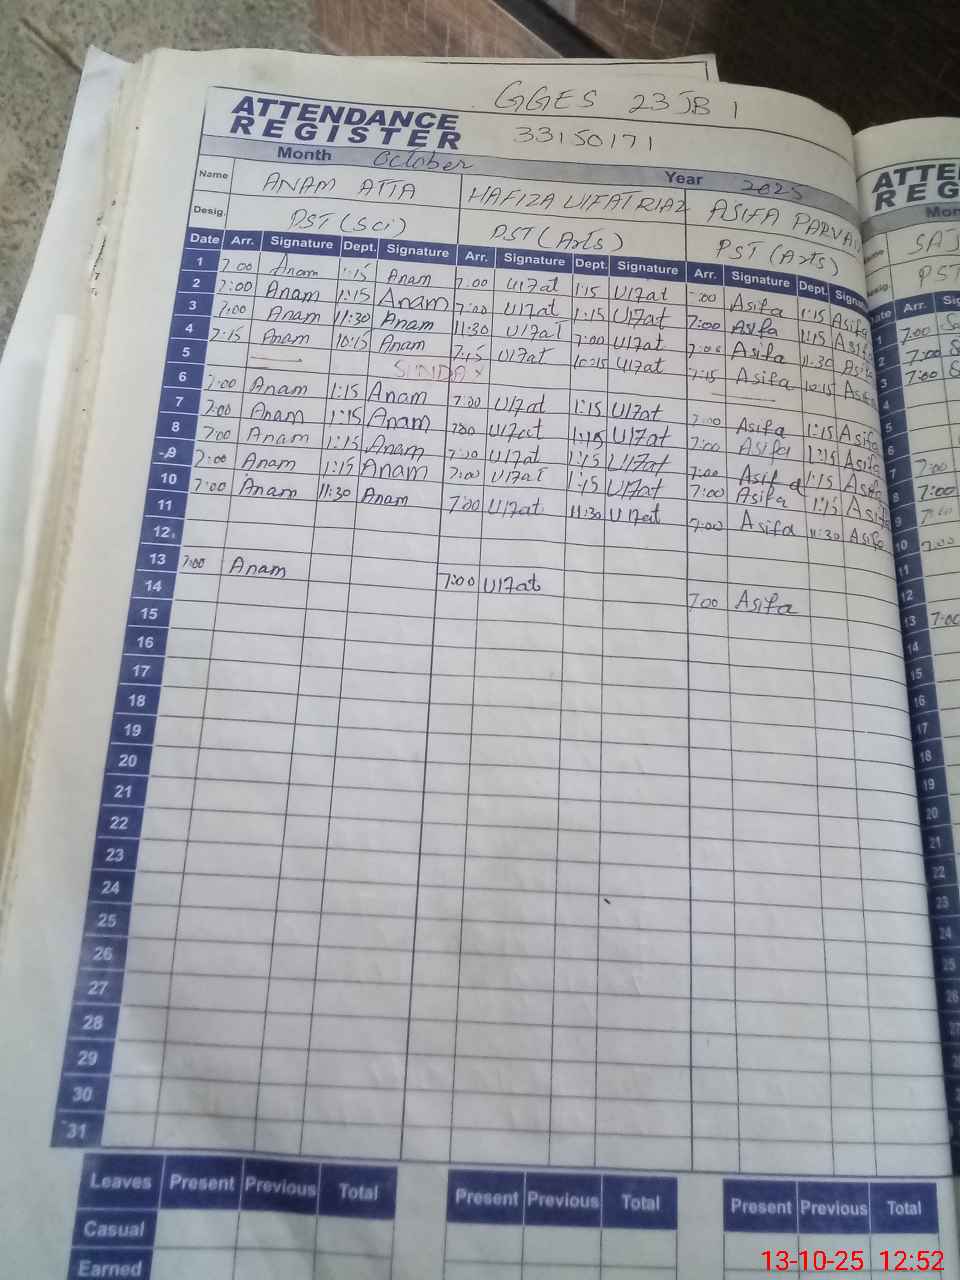 GGES 23 JB 1
ATTENDANCE
REGISTER
33150171
Month October Year 2025
Name ANAM ATTA HAFIZA UIFAT RIAZ ASIFA PARVAI
Desig. PST (Sci) PST (Arts) PST (Arts)
Date Arr. Signature Dept. Signature Arr. Signature Dept. Signature Arr. Signature Dept. Signatu
1 7:00 Anam 1:15 Anam 7:00 U17at 1:15 U17at 7:00 Asifa 1:15 Asifa
2 7:00 Anam 1:15 Anam 7:00 U17at 1:15 U17at 7:00 Asifa 1:15 Asifa
3 7:00 Anam 11:30 Anam 11:30 U17at 7:00 U17at 7:00 Asifa 11:30 Asifa
4 7:15 Anam 10:15 Anam 7:15 U17at 10:15 U17at 7:15 Asifa 10:15 Asifa
5 SUNDAY
6 7:00 Anam 1:15 Anam 7:00 U17at 1:15 U17at 7:00 Asifa 1:15 Asifa
7 7:00 Anam 1:15 Anam 7:00 U17at 1:15 U17at 7:00 Asifa 1:15 Asifa
8 7:00 Anam 1:15 Anam 7:00 U17at 1:15 U17at 7:00 Asifa 1:15 Asifa
9 7:00 Anam 1:15 Anam 7:00 U17at 1:15 U17at 7:00 Asifa 1:15 Asifa
10 7:00 Anam 11:30 Anam 7:00 U17at 11:30 U17at 7:00 Asifa 11:30 Asifa
11
12
13 7:00 Anam 7:00 U17at 7:00 Asifa
14
15
16
17
18
19
20
21
22
23
24
25
26
27
28
29
30
31
Leaves Present Previous Total Present Previous Total Present Previous Total
Casual
Earned
ATTE
REG
Mon
SAJ
PST
Date Arr. Sig
1 7:00
2 7:00 S
3 7:00 S
4
5
6
7 7:00
8 7:00
9 7:00
10 7:00
11
12
13 7:00
14
15
16
17
18
19
20
21
22
23
24
25
26
27
13-10-25 12:52